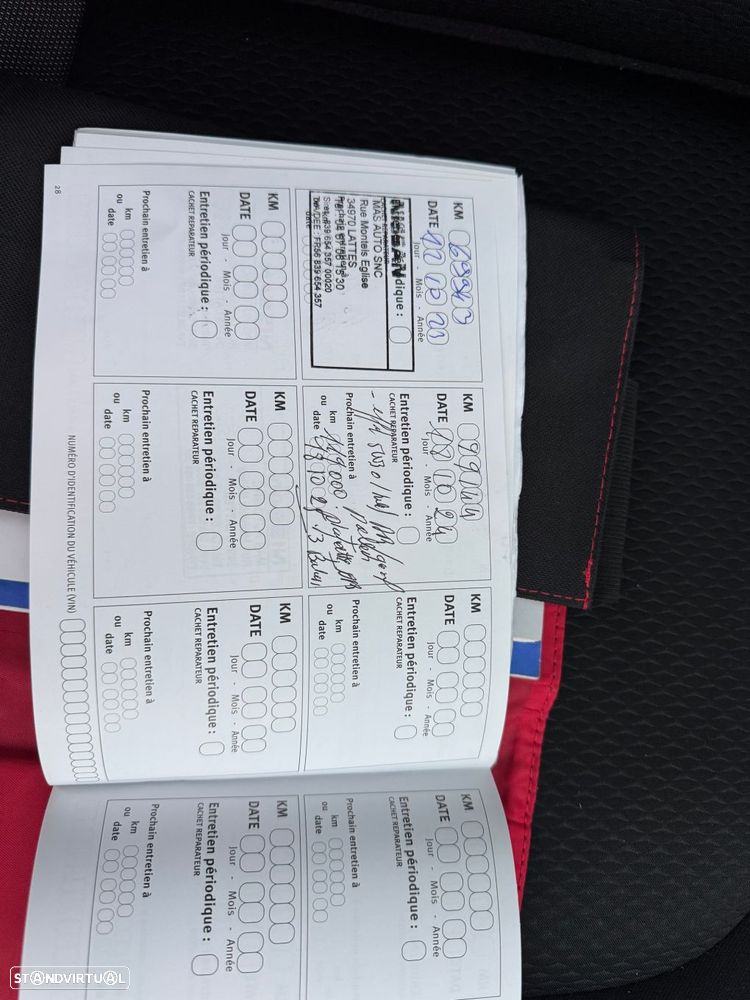 KM 68943
DATE 12 10 23
Jour - Mois - Année
Entretien périodique :
CACHET REPARATEUR
NISSAN
MAS AUTO SNC
Rue Montels Eglise
34970 LATTES
Prochain entretien à
ou km
date
KM 99144
DATE 18 10 24
Jour - Mois - Année
Entretien périodique :
CACHET REPARATEUR
Prochain entretien à
ou km 119000
date
KM
DATE
Jour - Mois - Année
Entretien périodique :
CACHET REPARATEUR
Prochain entretien à
ou km
date
KM
DATE
Jour - Mois - Année
Entretien périodique :
CACHET REPARATEUR
Prochain entretien à
ou km
date
KM
DATE
Jour - Mois - Année
Entretien périodique :
CACHET REPARATEUR
Prochain entretien à
ou km
date
KM
DATE
Jour - Mois - Année
Entretien périodique :
CACHET REPARATEUR
Prochain entretien à
ou km
date
KM
DATE
Jour - Mois - Année
Entretien périodique :
CACHET REPARATEUR
Prochain entretien à
ou km
date
KM
DATE
Jour - Mois - Année
Entretien périodique :
CACHET REPARATEUR
Prochain entretien à
ou km
date
NUMÉRO D'IDENTIFICATION DU VÉHICULE (VIN)
28
STANDVIRTUAL